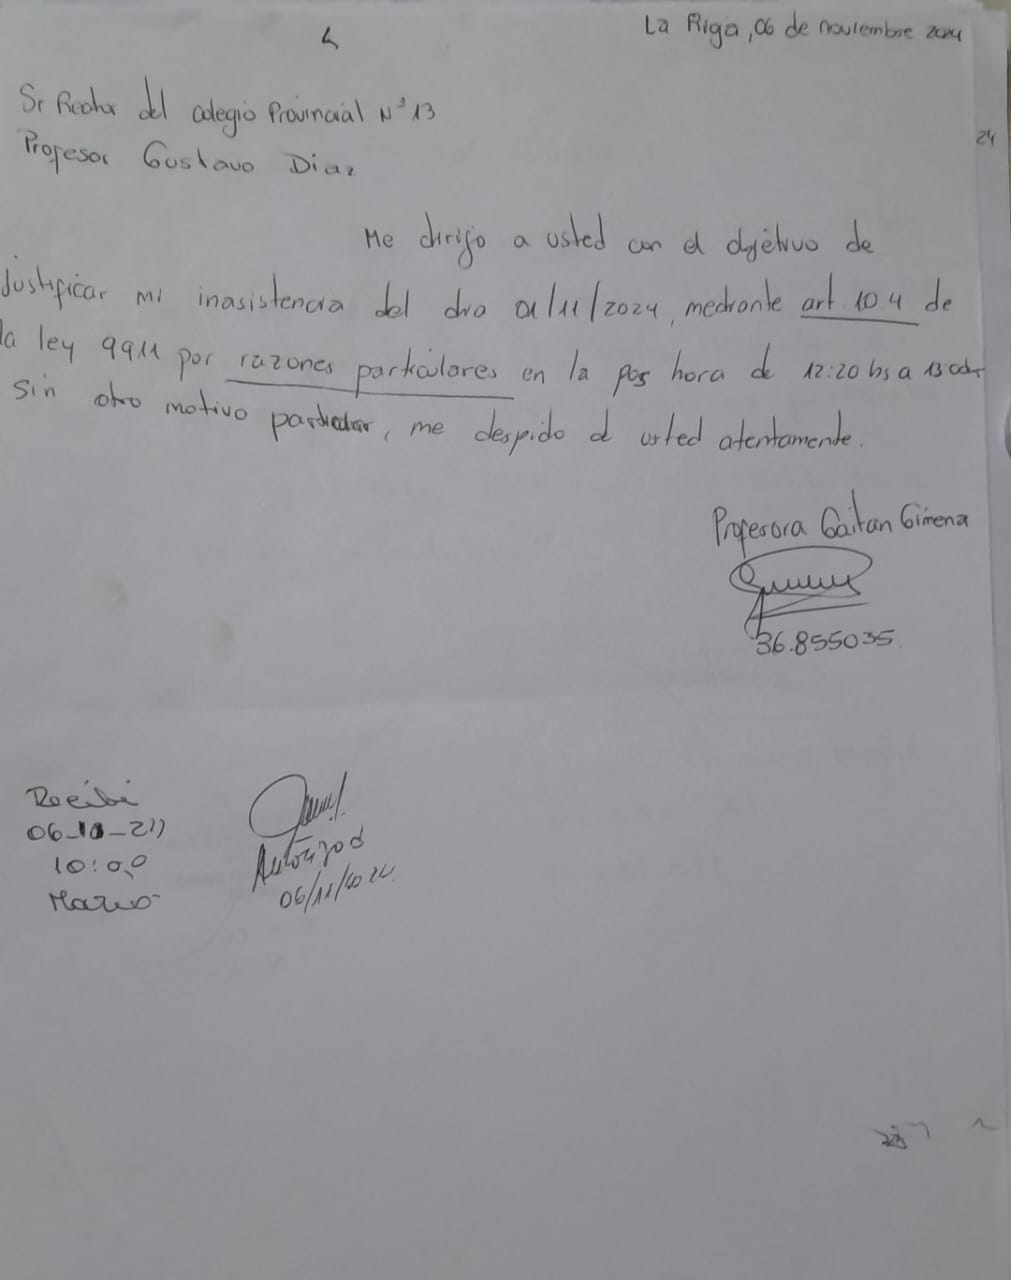 La Rioja, 06 de noviembre 2024
Sr Rector del colegio Provincial N° 13
24
Profesor Gustavo Diaz
Me dirijo a usted con el objetivo de
Justificar mi inasistencia del dia 01/11/2024, mediante art. 10.4 de
la ley 9911 por razones particulares en la pos hora de 12:20 hs a 13
sin otro motivo particular, me despido d usted atentamente.
Profesora Gaitan Gimena
36.855035
Recibi
06-10-
10:00
Autorizad
06/11/2024